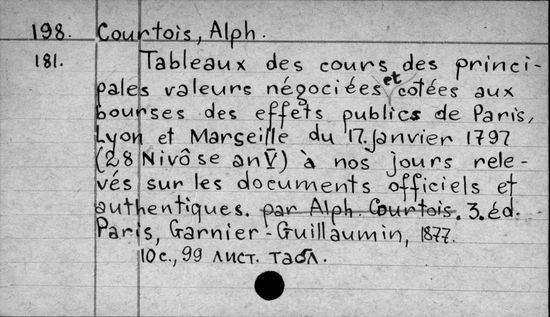 198. Courtois, Alph.
181. Tableaux des cours des princi-
pales valeurs négociées et cotées aux
bourses des effets publics de Paris,
Lyon et Marseille du 17. Janvier 1797
(28 Nivôse an V) à nos jours rele-
vés sur les documents officiels et
authentiques. par Alph. Courtois. 3. éd.
Paris, Garnier-Guillaumin, 1877.
10 с., 99 лист. табл.